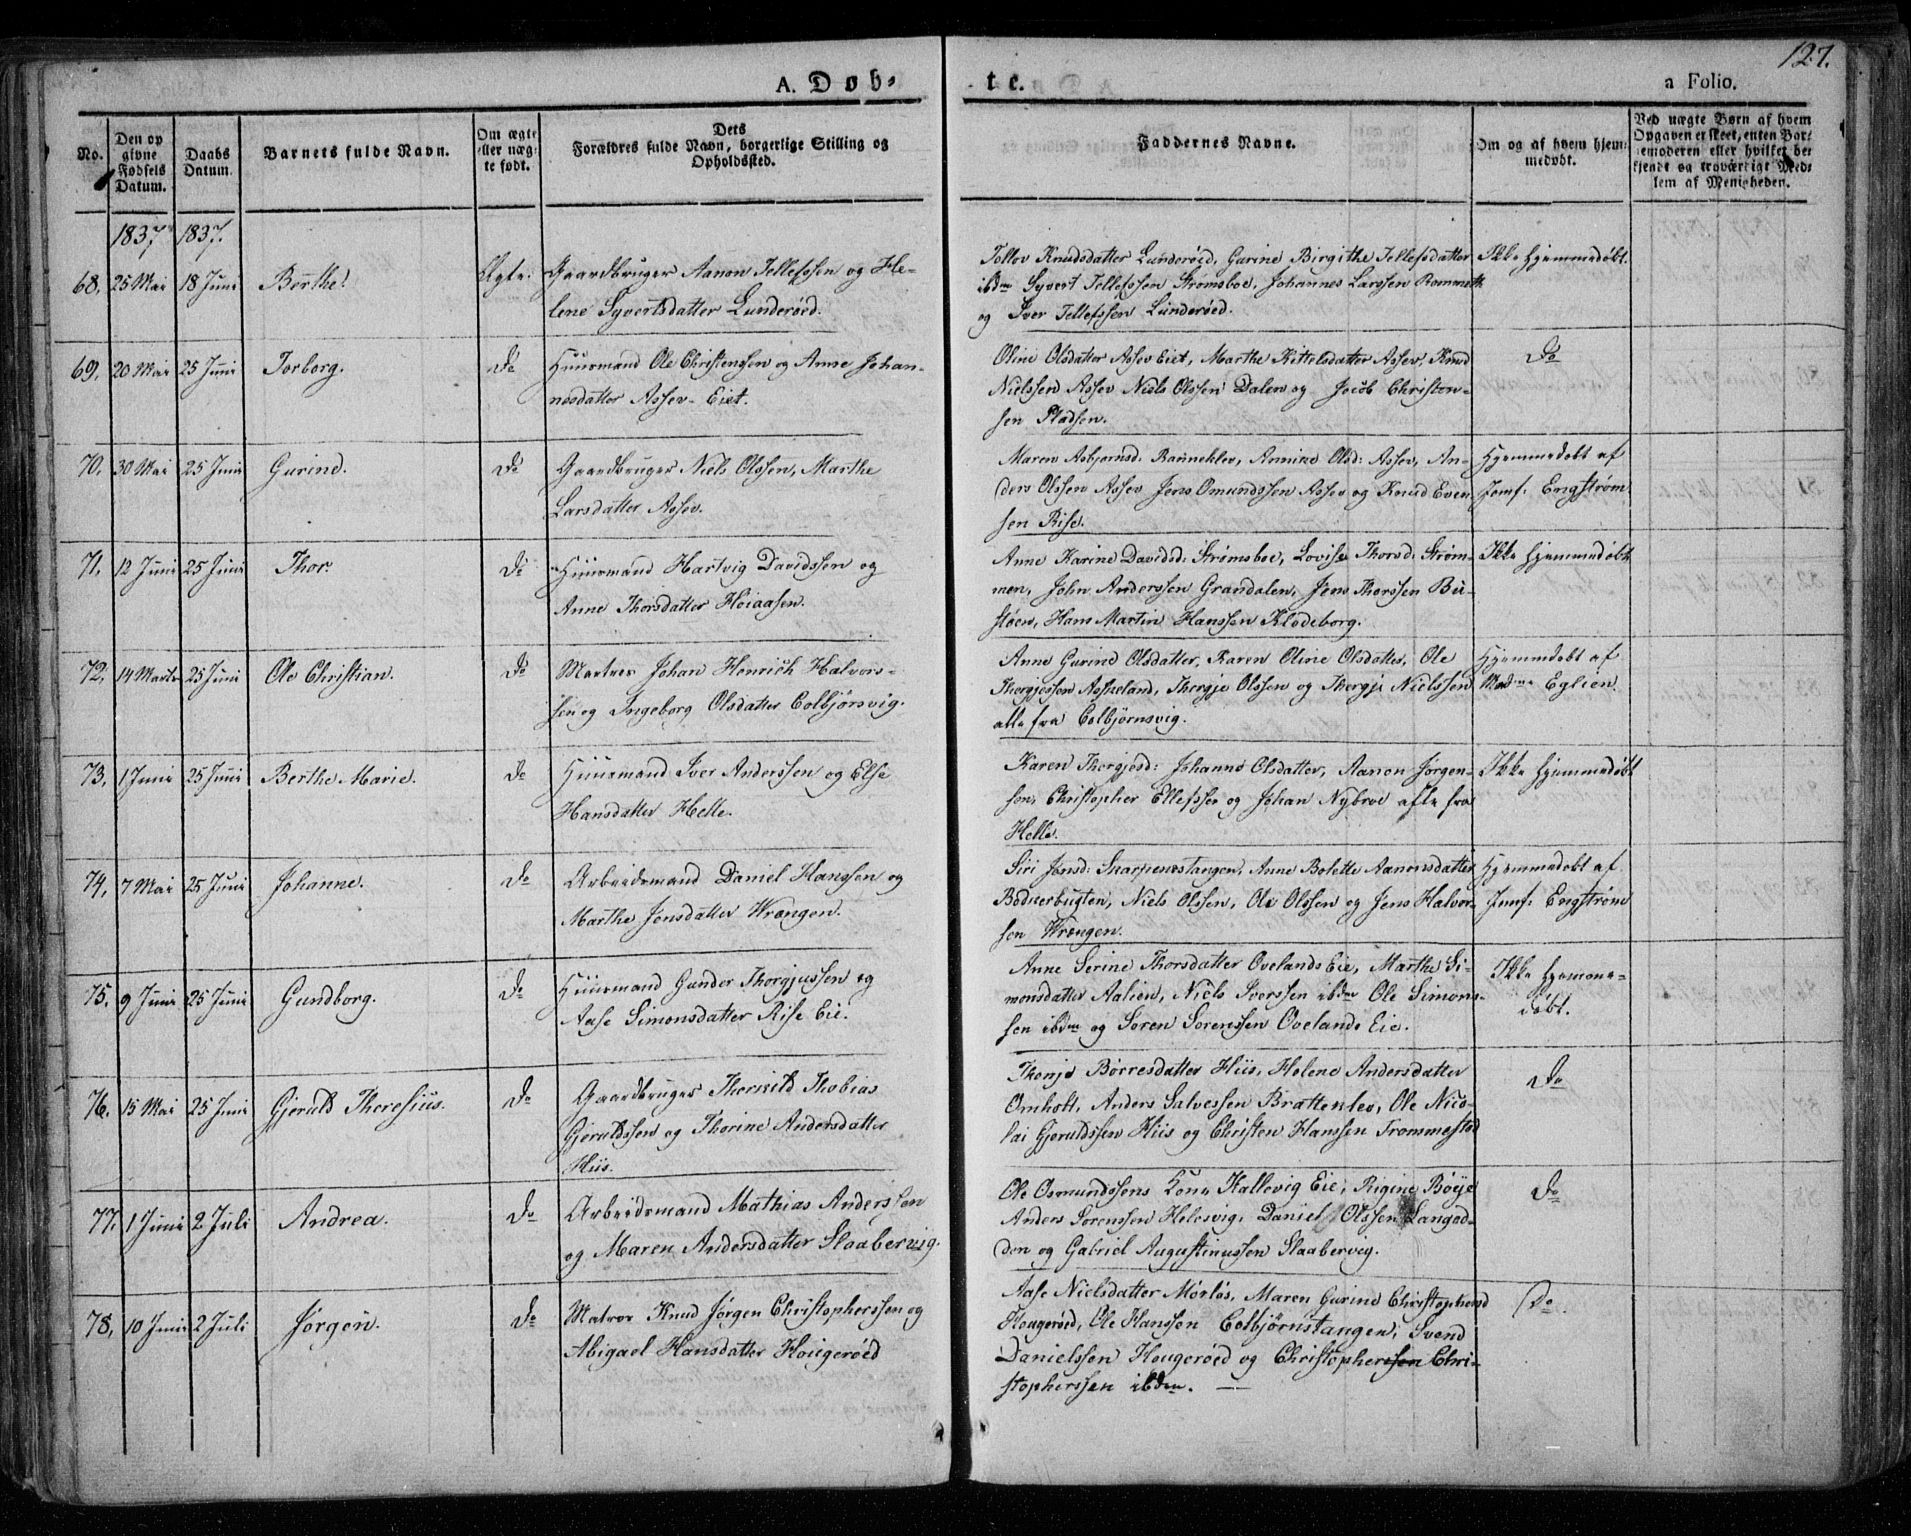 127.
A. Døb-
te.
a Folio.
No.
Den op
givne
Fødsels
Datum.
Daabs
Datum.
Barnets fulde Navn.
Om ægte
eller uæg-
te født.
Dets
Forældres fulde Navn, borgerlige Stilling og
Opholdssted.
Faddernes Navne.
Om og af hvem hjem-
medøbt.
Ved uægte Børn af hvem
Opgaven er skeet, enten Bar-
nemoderen eller hvilket be-
kjendt og troværdigt Med-
lem af Menigheden.
1837 1837.
68. 25 Mai 18 Juni Berthe. Ægte. Gaardbruger Aanon Tellefssen og He-
lene Syvertsdatter Lunderøed.
Tollov Knudsdatter Lunderøed, Gurine Birgithe Tellefsdatter
ibdm Syvert Tellefssen Strømsboe, Johannes Larssen
og Iver Tellefssen Lunderøed.
Ikke hjemmedøbt.
69. 20 Mai 25 Juni Torborg. Do Huusmand Ole Christenssen og Anne Johan-
nesdatter Assev-Eiet.
Oline Olsdatter Assev Eiet, Marthe Kittelsdatter Assev, Knud
Nielssen Assev Niels Olssen Dalen og Jacob Christen-
sen Pladsen.
Do
70. 30 Mai 25 Juni Gurine. Do Gaardbruger Niels Olssen, Marthe
Larsdatter Assev.
Maren Asbjørnsd: Ranneklev, Annine Olsd: Assev, An-
ders Olssen Assev Jens Omundssen Assev og Knud Even-
sen Rise.
Hjemmedøbt af
Jomf: Engstrøm
71. 12 Juni 25 Juni Thor. Do Huusmand Hartvig Davidssen og
Anne Thorsdatter Høiaasen.
Anne Karine Davidsd: Strømsboe, Lovise Thorsd: Strøm-
men, John Anderssen Grandalen, Jens Thorssen Bu-
støen, Hans Martin Hanssen Klodeborg.
Ikke hjemmedøbt
72. 14 Marts 25 Juni Ole Christian. Do Matros Johan Henrich Halvors-
sen og Ingeborg Olsdatter Colbjørsvig.
Anne Gurine Olsdatter, Karen Oline Olsdatter, Ole
Thergjessen Aspeland, Thergje Olssen og Thergje Nielssen
alle fra Colbjørnsvig.
Hjemmedøbt af
Madme Eglien.
73. 1 Juni 25 Juni Berthe Marie. Do Huusmand Iver Anderssen og Else
Hansdatter Helle.
Karen Thergjesd: Johanne Olsdatter, Aanon Jørgen-
sen, Christopher Ellefssen og Johan Nybroe alle fra
Helle.
Ikke hjemmedøbt
74. 7 Mai 25 Juni Johanne. Do Arbeidsmand Daniel Hanssen og
Marthe Jensdatter Wrangen.
Siri Jensd: Skarpenestangen, Anne Bolette Aanonsdatter
Bødkerbugten, Niels Olssen, Ole Olssen og Jens Halvor-
sen Wrængen.
Hjemmedøbt af
Jomf: Engstrøm
75. 9 Juni 25 Juni Gundborg. Do Huusmand Gunder Thorgjussen og
Aase Simonsdatter Rise Eie.
Anne Serine Thorsdatter Ovelands Eie, Marthe Si-
monsdatter Aalien, Niels Iverssen ibdm Ole Simons-
sen ibdm og Søren Sørenssen Ovelands Eie.
Ikke hjemme-
døbt.
76. 15 Mai 25 Juni Gjeruld Theresius. Do Gaardbruger Therkild Thobias
Gjeruldssen og Thorine Andersdatter
Hiis.
Thonje Børresdatter Hiis, Helene Andersdatter
Omholt, Anders Salvessen Bratteklev, Ole Nico-
lai Gjeruldssen Hiis og Christen Hanssen Trommestad
Do
77. 1 Juni 2 Juli Andrea. Do Arbeidsmand Mathias Anderssen
og Maren Andersdatter Slaabervig.
Ole Osmundssens Kone Kallevig Eie, Rigine Bøye
Anders Sørenssen Hilesvig, Daniel Olssen Langød-
den og Gabriel Augustinussen Slaabervig.
Do
78. 10 Juni 2 Juli Jørgen. Do Matros Knud Jørgen Christopherssen og
Abigael Hansdatter Hougerøed
Aase Nielsdatter Mørløs, Maren Gurine Christophersd
Hougerøed, Ole Hanssen Colbjørnstangen, Svend
Danielssen Hougerøed og Christophersen Chri-
stopherssen ibdm. —
Do.